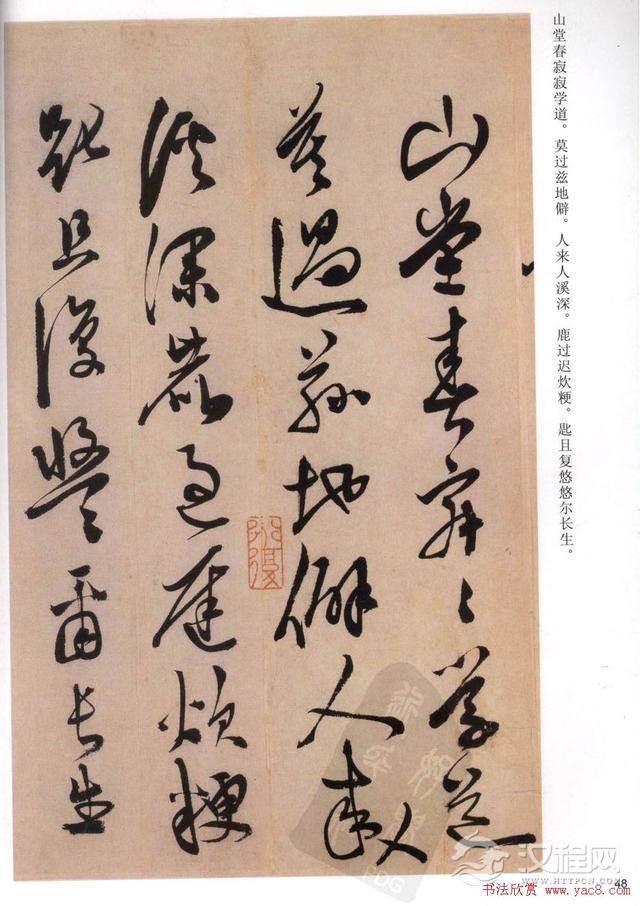 山堂春寂寂学道。莫过兹地僻。人来人溪深。鹿过迟炊粳。匙且复悠悠尔长生。
山堂春寂〻学道
莫過兹地僻人来人
溪深鹿過遲炊粳
且復爾長生
汉程网
WWW.HTTPCN.COM
48
书法欣赏 www.yac8.com